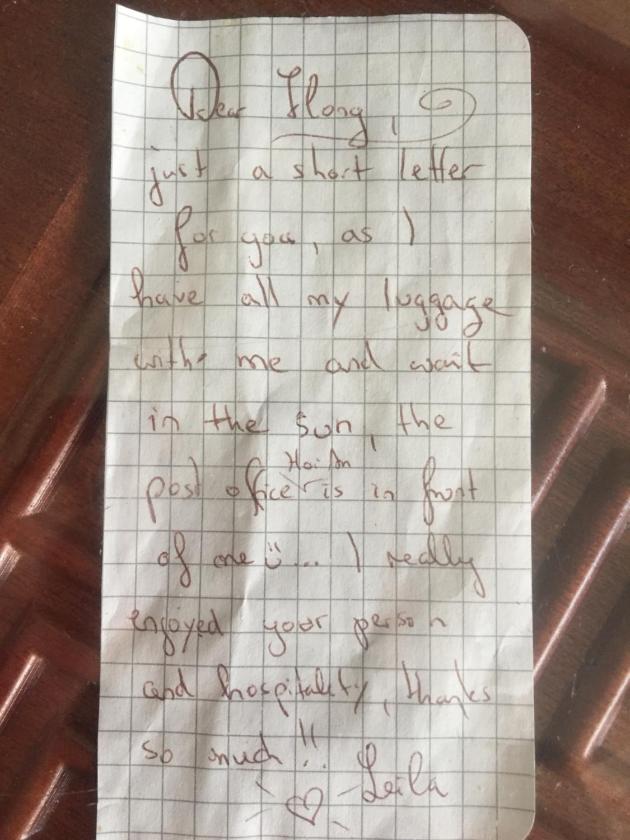 Dear Hong,
just a short letter
for you, as I
have all my luggage
with me and wait
in the sun, the
Hoi An
post office is in front
of me ... I really
enjoyed your person
and hospitality, thanks
so much!!
Leila